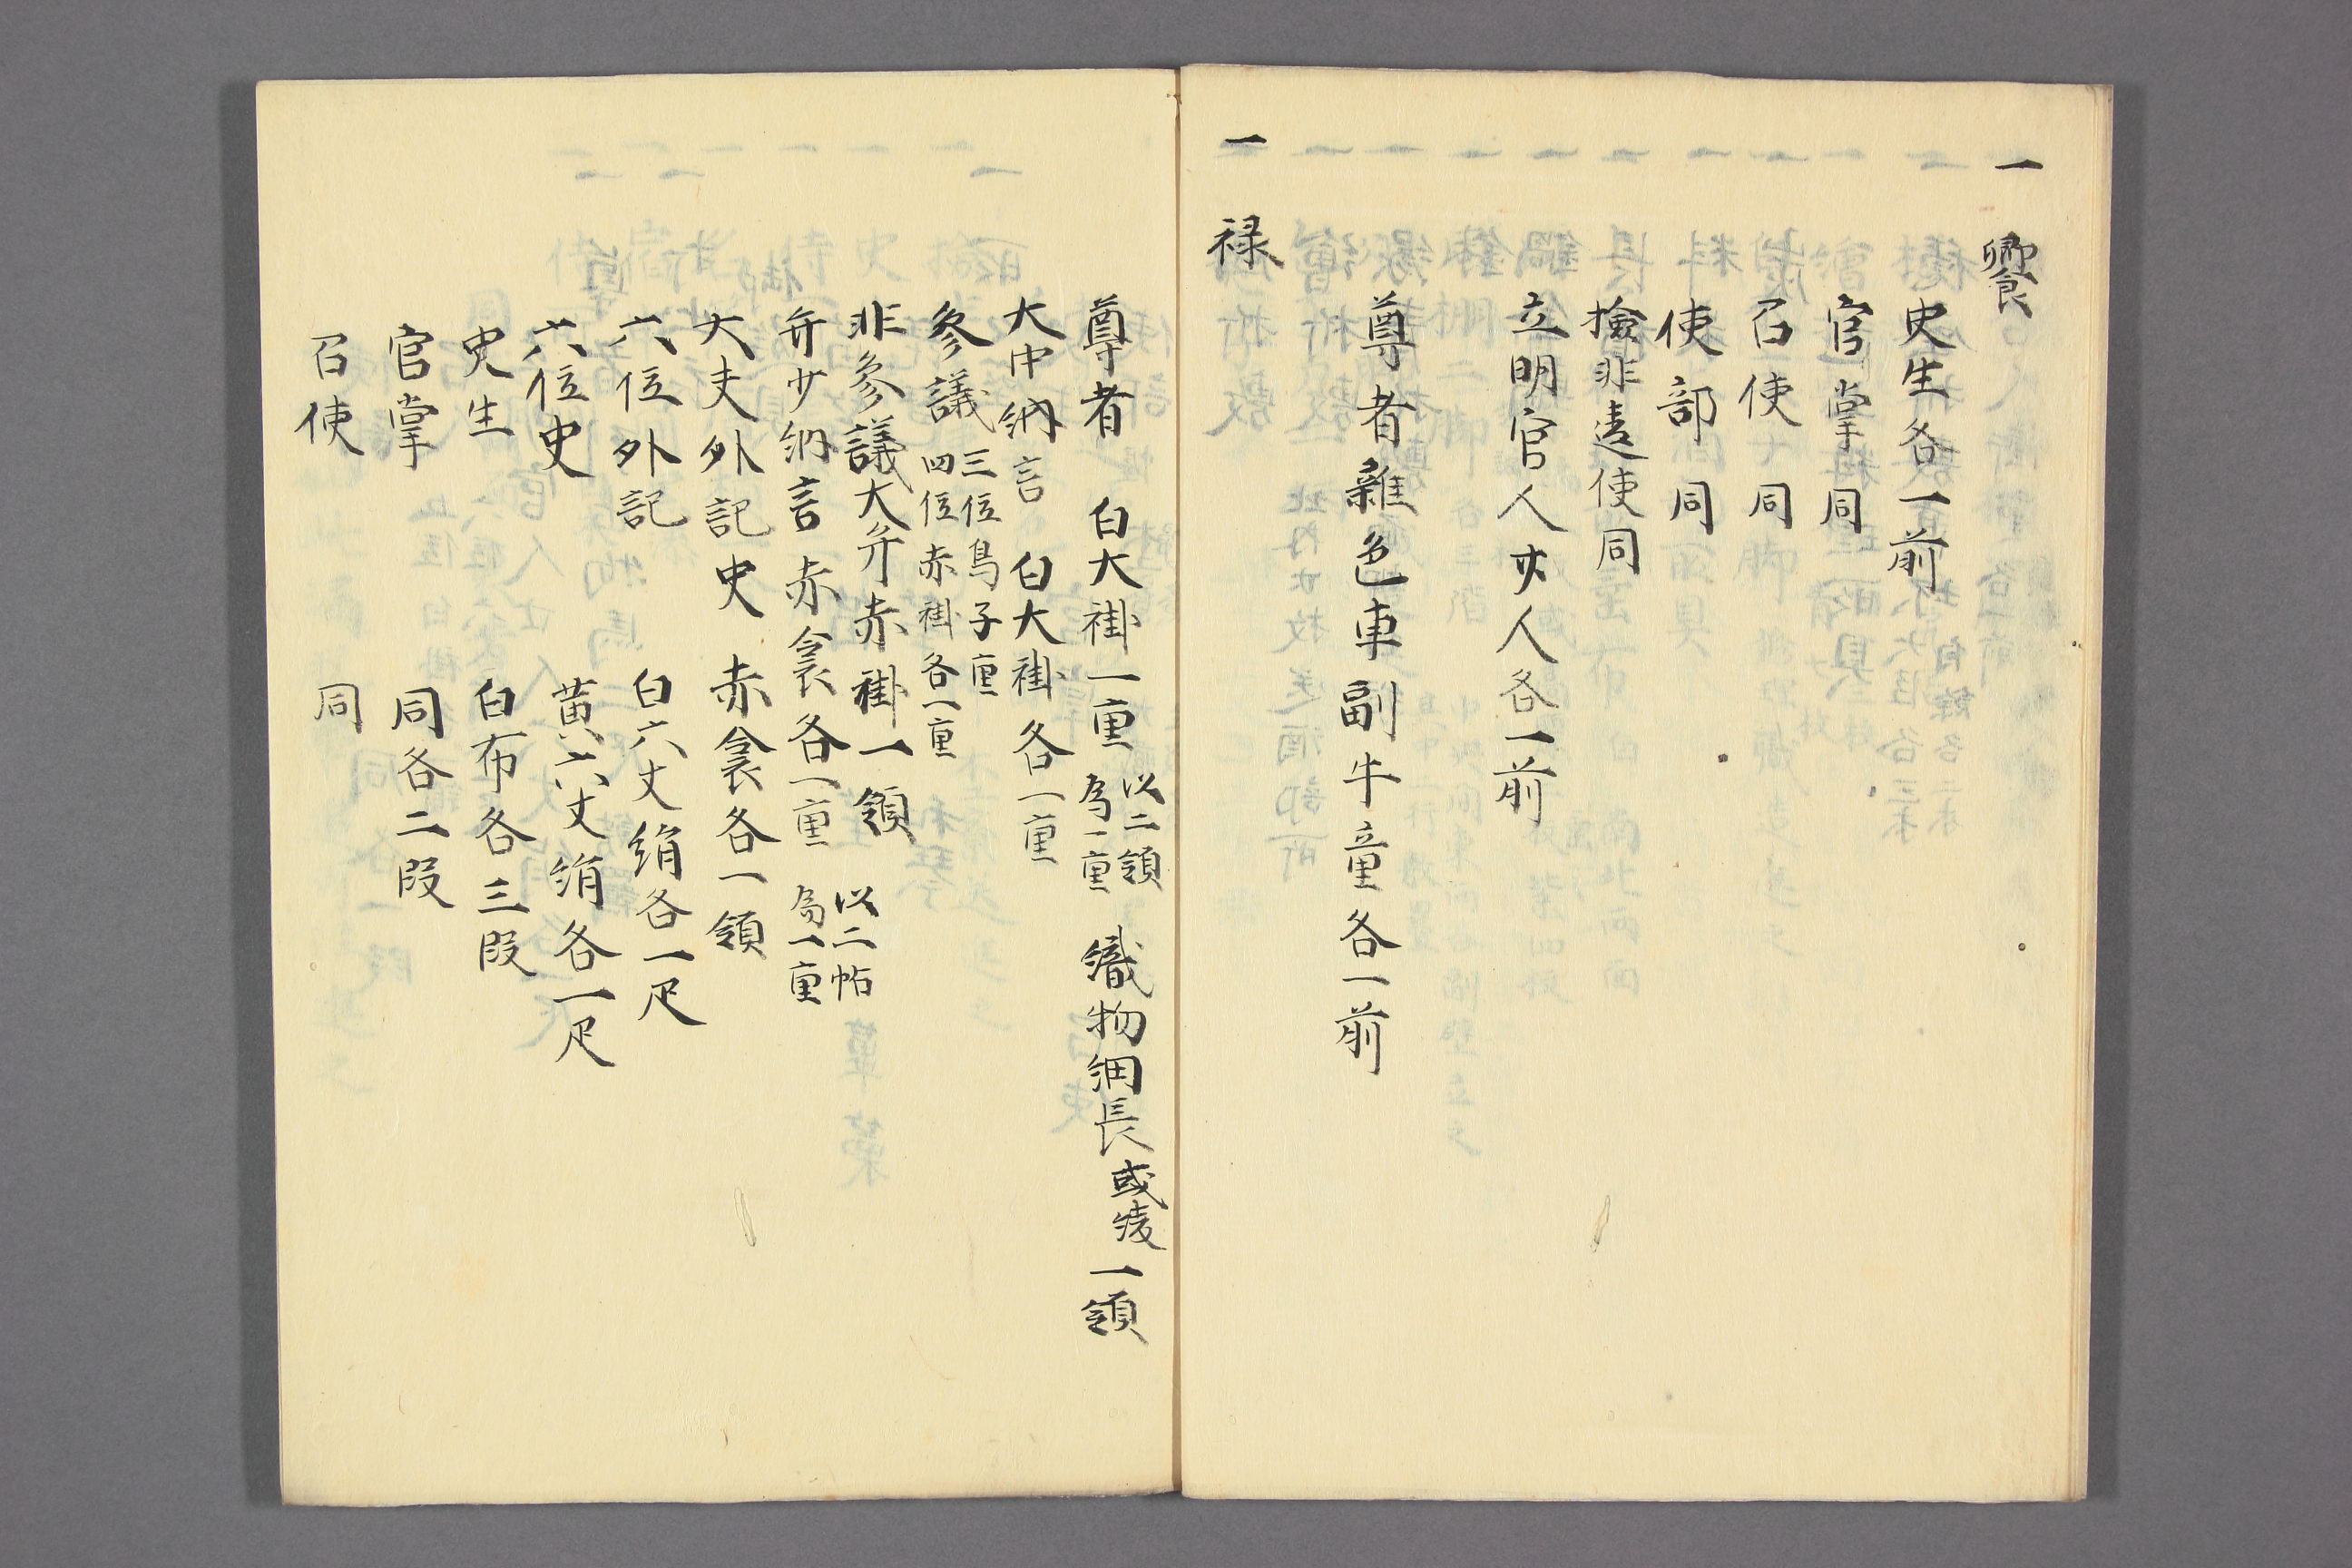 一 饗
史生各一前
官掌同
召使同
使部同
撿非違使同
立明官人廾人各一前
尊者雜色車副牛童各一前
一 禄
尊者 白大褂一重 以二領 為一重 織物細長 或綾 一領
大中納言 白大褂各一重
参議 三位鳥子重 四位赤褂各一重
非参議大弁赤褂一領
弁少納言赤衾各一重 以二帖 為一重
大夫外記史 赤衾各一領
六位外記 白六丈絹各一疋
六位史 黄六丈絹各一疋
史生 白布各三段
官掌 同各二段
召使 同